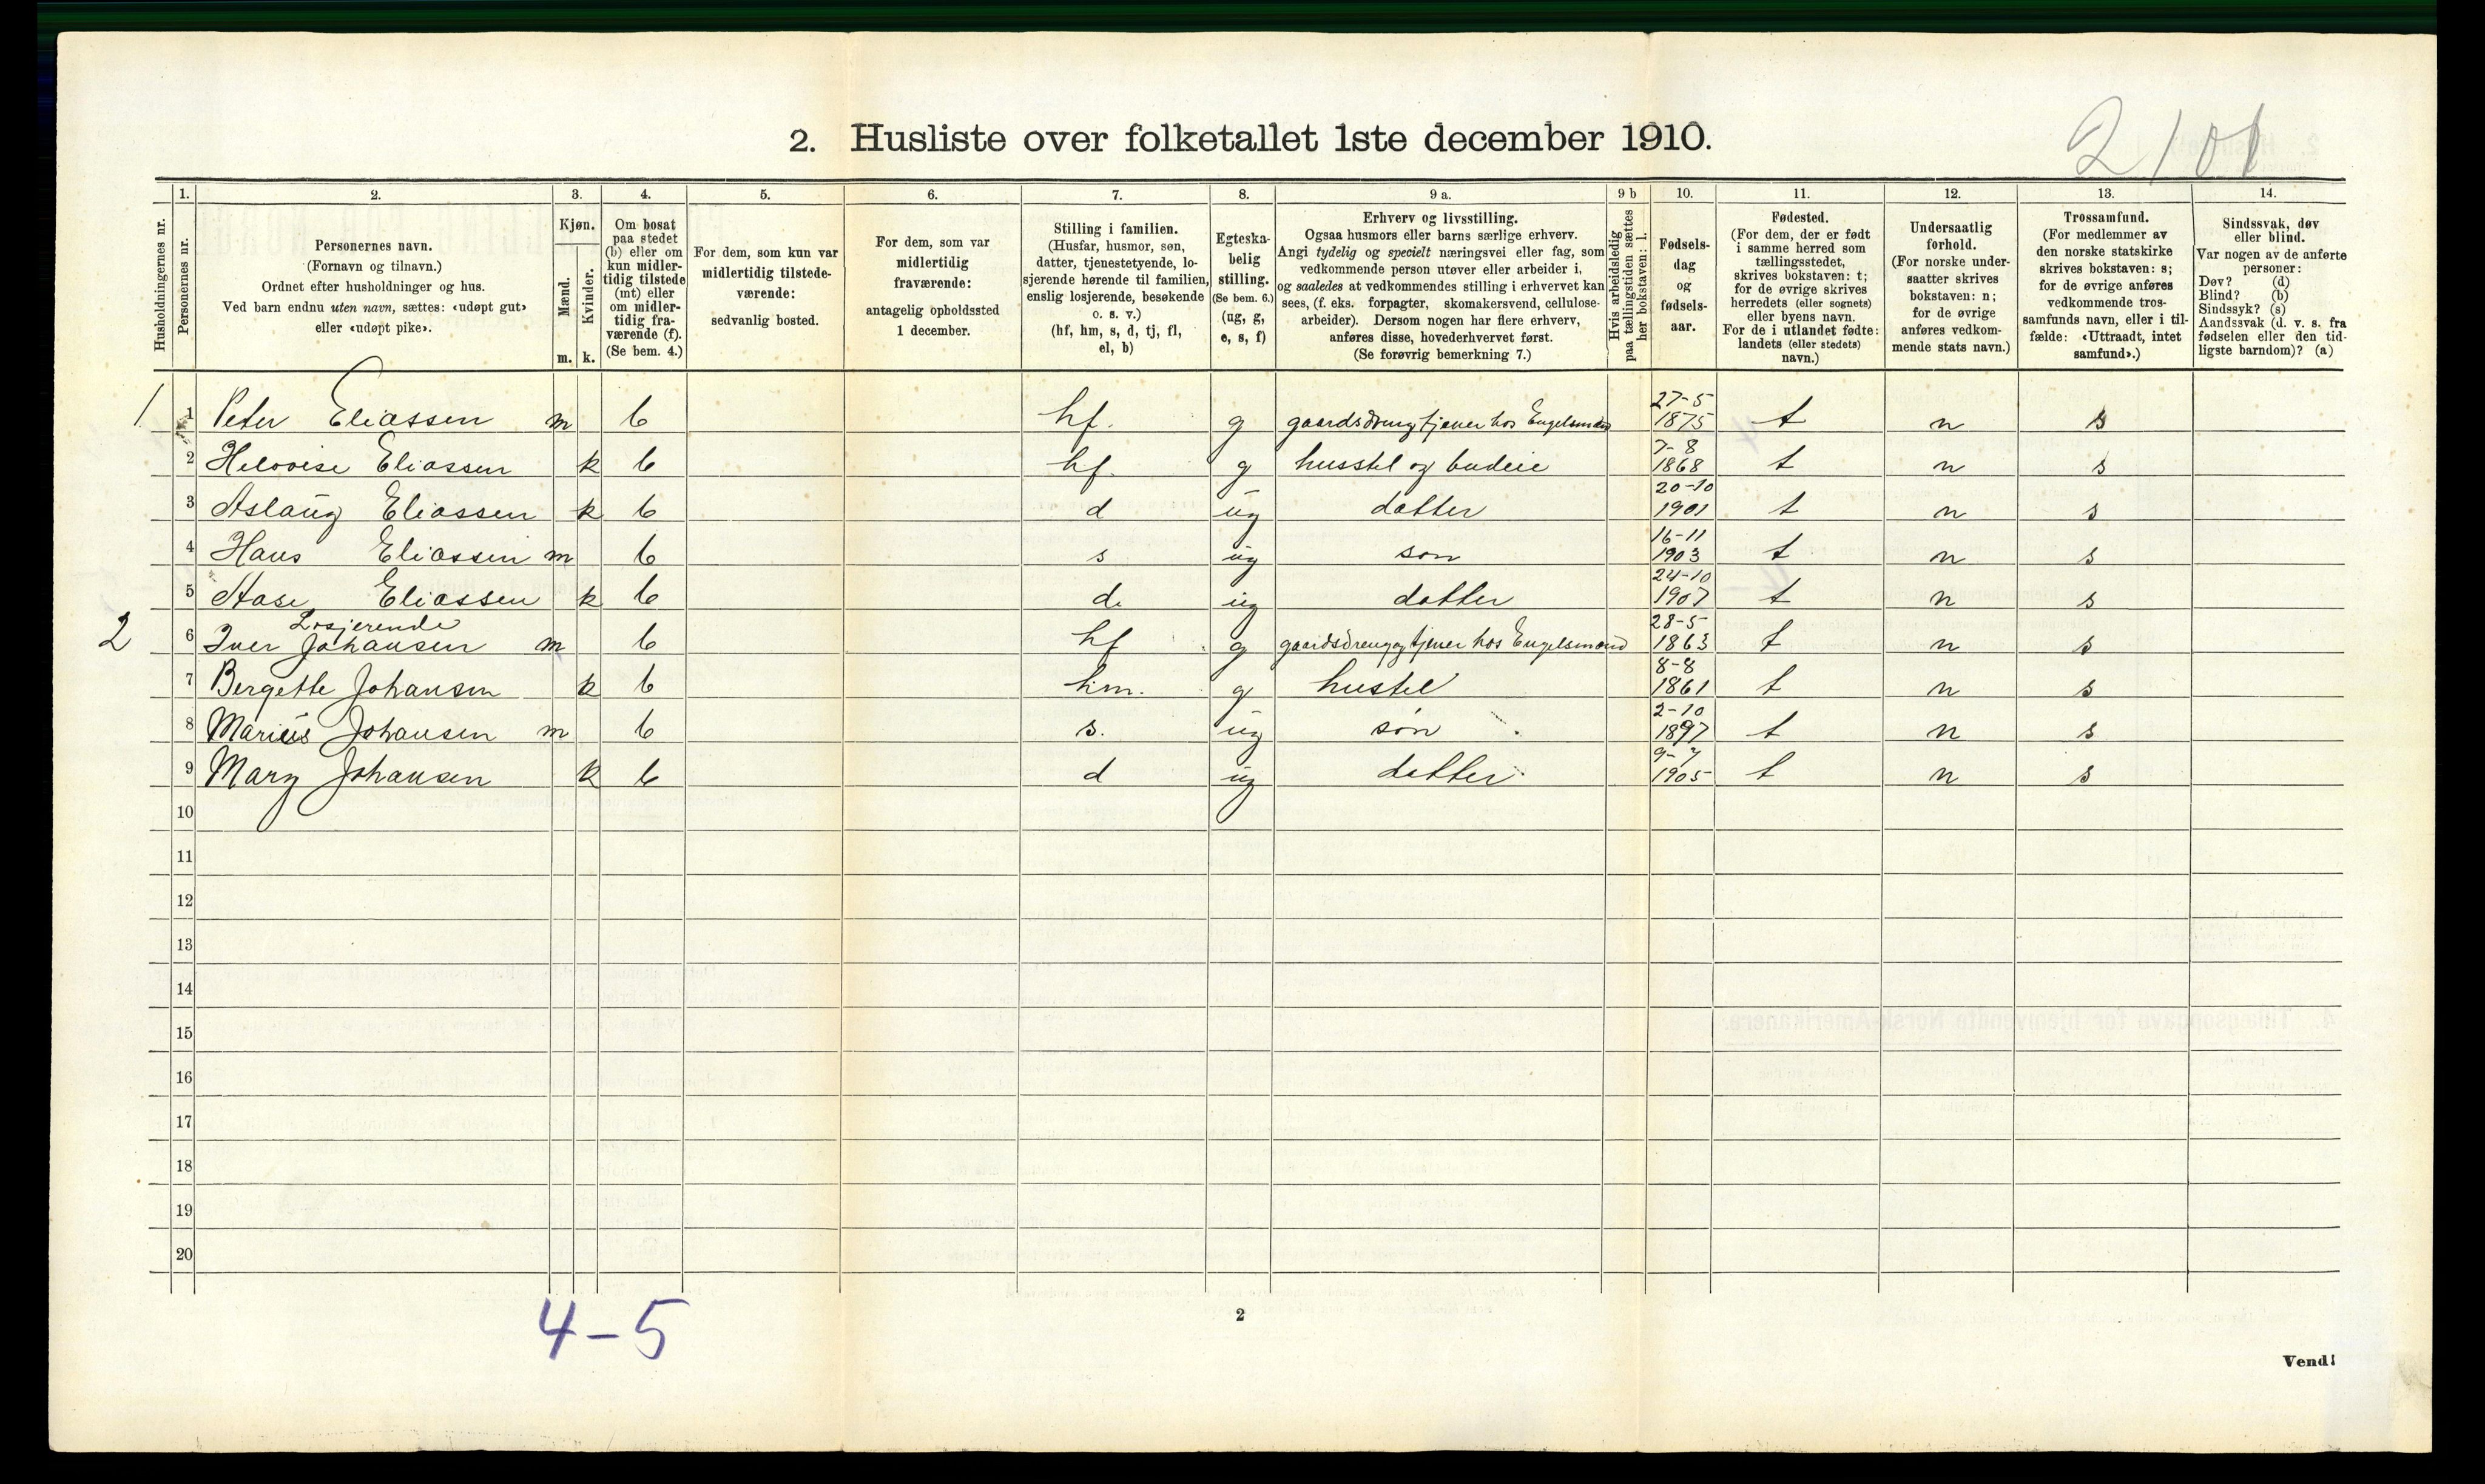 2101
2. Husliste over folketallet 1ste december 1910.
Husholdningernes nr.
1.
Personernes nr.
2.
Personernes navn.
(Fornavn og tilnavn.)
Ordnet efter husholdninger og hus.
Ved barn endnu uten navn, sættes: «udøpt gut»
eller «udøpt pike».
3.
Kjøn.
Mænd.
m.
Kvinder.
k.
4.
Om bosat
paa stedet
(b) eller om
kun midler-
tidig tilstede
(mt) eller
om midler-
tidig fra-
værende (f).
(Se bem. 4.)
5.
For dem, som kun var
midlertidig tilstede-
værende:
sedvanlig bosted.
6.
For dem, som var
midlertidig
fraværende:
antagelig opholdssted
1 december.
7.
Stilling i familien.
(Husfar, husmor, søn,
datter, tjenestetyende, lo-
sjerende hørende til familien,
enslig losjerende, besøkende
o. s. v.)
(hf, hm, s, d, tj, fl,
el, b)
8.
Egteska-
belig
stilling.
(Se bem. 6.)
(ug, g,
e, s, f)
9 a.
Erhverv og livsstilling.
Ogsaa husmors eller barns særlige erhverv.
Angi tydelig og specielt næringsvei eller fag, som
vedkommende person utøver eller arbeider i,
og saaledes at vedkommendes stilling i erhvervet kan
sees, (f. eks. forpagter, skomakersvend, cellulose-
arbeider). Dersom nogen har flere erhverv,
anføres disse, hovederhvervet først.
(Se forøvrig bemerkning 7.)
9 b
Hvis arbeidsledig
paa tællingstiden sættes
her bokstaven: l.
10.
Fødsels-
dag
og
fødsels-
aar.
11.
Fødested.
(For dem, der er født
i samme herred som
tællingsstedet,
skrives bokstaven: t;
for de øvrige skrives
herredets (eller sognets)
eller byens navn.
For de i utlandet fødte:
landets (eller stedets)
navn.)
12.
Undersaatlig
forhold.
(For norske under-
saatter skrives
bokstaven: n;
for de øvrige
anføres vedkom-
mende stats navn.)
13.
Trossamfund.
(For medlemmer av
den norske statskirke
skrives bokstaven: s;
for de øvrige anføres
vedkommende tros-
samfunds navn, eller i til-
fælde: «Uttraadt, intet
samfund».)
14.
Sindssvak, døv
eller blind.
Var nogen av de anførte
personer:
Døv? (d)
Blind? (b)
Sindssyk? (s)
Aandssvak (d. v. s. fra
fødselen eller den tid-
ligste barndom)? (a)
1 1 Peter Eliassen m b hf. g gaardsdreng tjener hos Engelsmand 27-5 1875 t n s
2 Helovise Eliassen k b hf. g husstel og budeie 7-8 1868 t n s
3 Aslaug Eliassen k b d ug datter 20-10 1901 t n s
4 Hans Eliassen m b s ug søn 16-11 1903 t n s
5 Aase Eliassen k b d. ug datter 24-10 1907 t n s
Losjerende
2 6 Iver Johansen m b hf g gaardsdreng og tjener hos Engelsmand 28-5 1863 t n s
7 Bergette Johansen k b hm. g hustel 8-8 1861 t n s
8 Marius Johansen m b s. ug søn 2-10 1897 t n s
9 Mary Johansen k b d ug datter 9-7 1905 t n s
10
11
12
13
14
15
16
17
18
19
20
4-5
2
Vend!